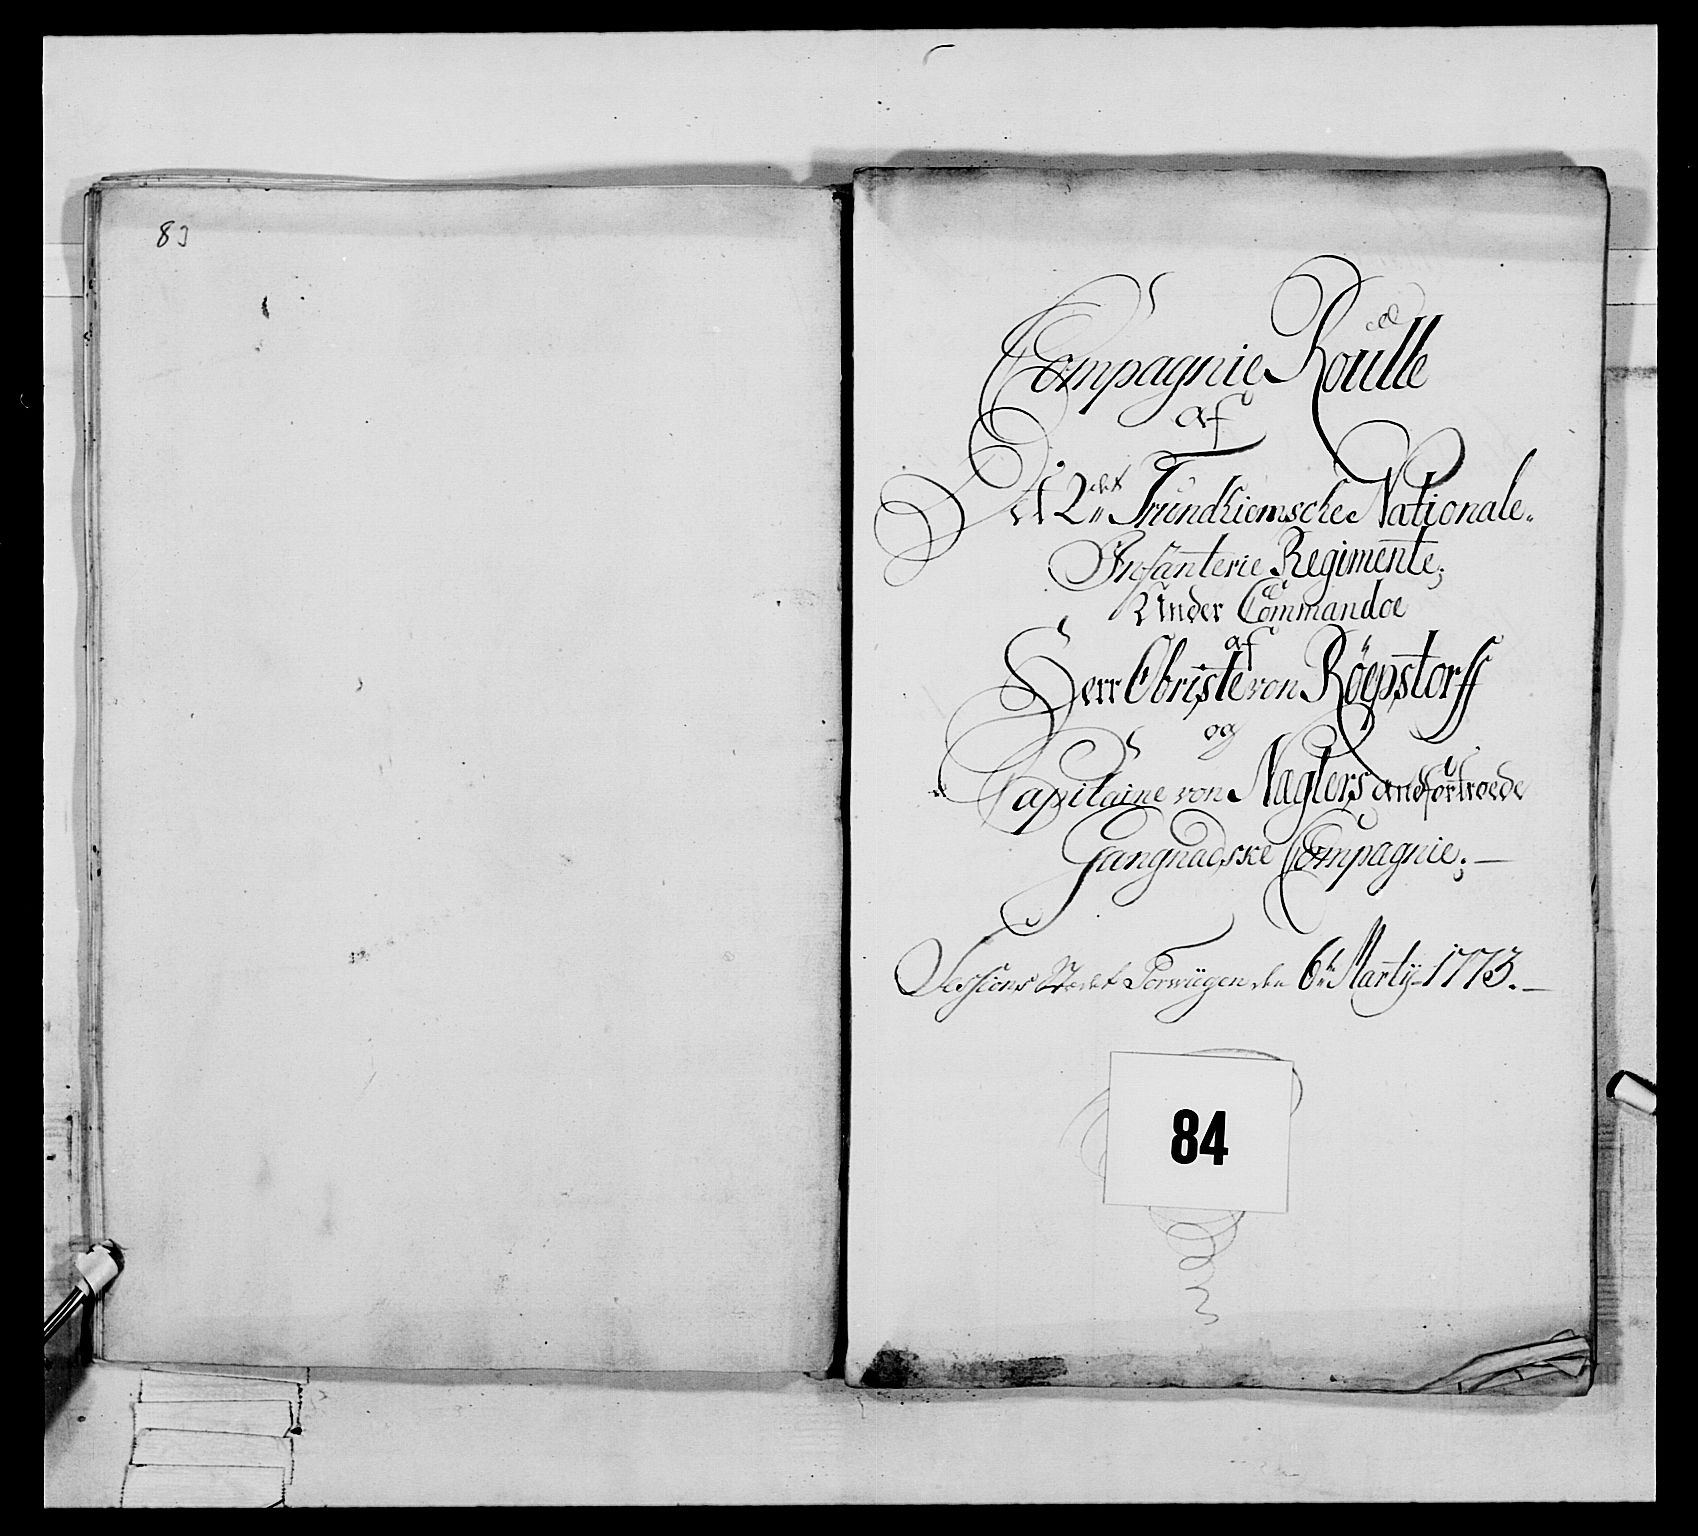 83
Compagnie Roulle
af
Det 2det Trundhiemsche Nationale
Infanterie Regimente;
Under Commandoe
af
Herr Obriste von Röepstorff
og
Capitaine von Naglers andfortroede
Gangnadske Compagnie. —
Sessions Stedet Porwügen den 6te Martij 1773. —
84